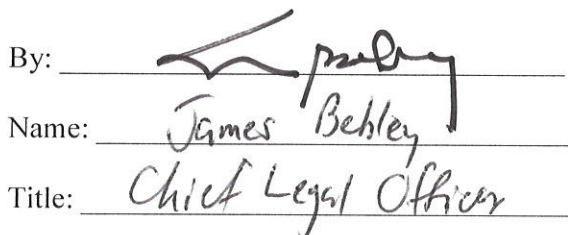 By:
Name: James Behley
Title: Chief Legal Officer